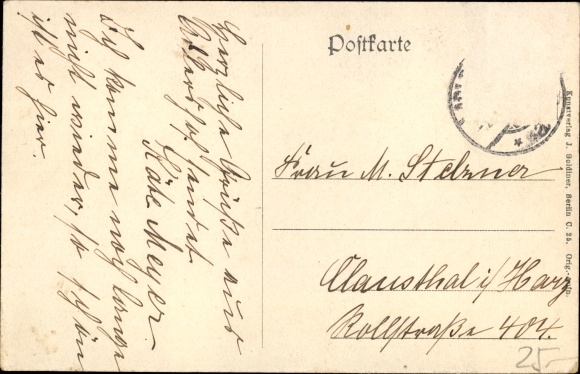 Postkarte
Herzliche Grüße aus
sendet
Käte Meyer.
Ich komme noch lange
nicht wieder, so schön
ist es hier.
Frau M. Stelzner
Clausthal i/Harz
Rollstraße 404.
Kunstverlag J. Goldiner, Berlin C. 25. Orig.-
25-